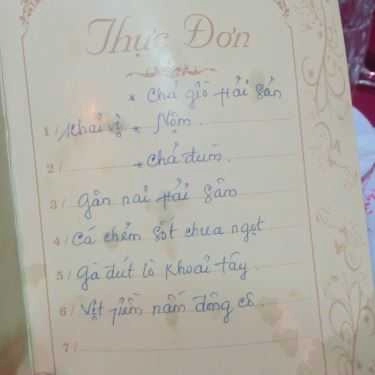 Thực Đơn
* Chả giò Hải Sản
1/ Khai vị * Nộm.
2/ * Chả đùm.
3/ Gân nai Hải Sâm
4/ Cá chẻm sốt chua ngọt
5/ Gà đút lò Khoai tây.
6/ Vịt tiềm nấm đông cô.
7/